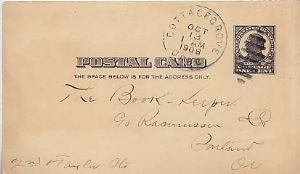 COTTAGE GROVE
OCT
13
1 AM
1908
POSTAL CARD
THE SPACE BELOW IS FOR THE ADDRESS ONLY.
ONE CENT
The Book-Keeper
c/o Rasmussen & Co
Portland
Or